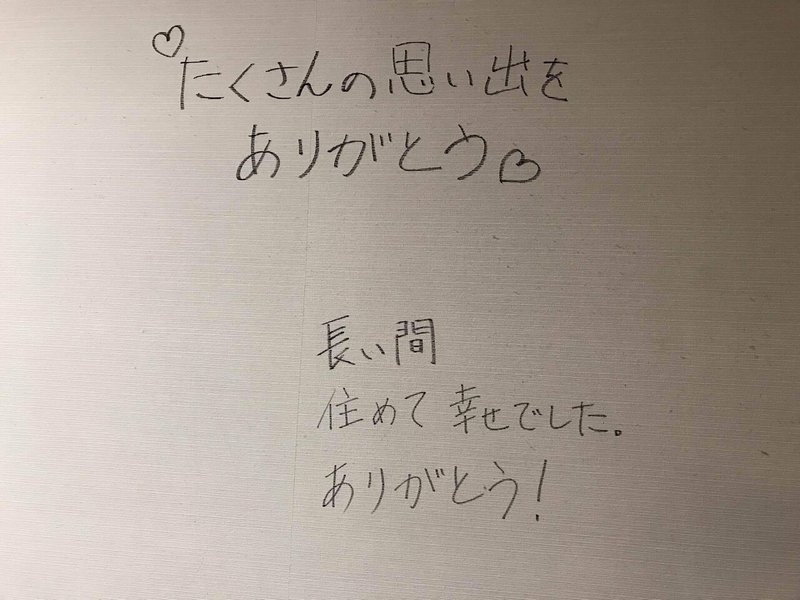 ♡たくさんの思い出を
ありがとう♡
長い間
住めて 幸せでした。
ありがとう!